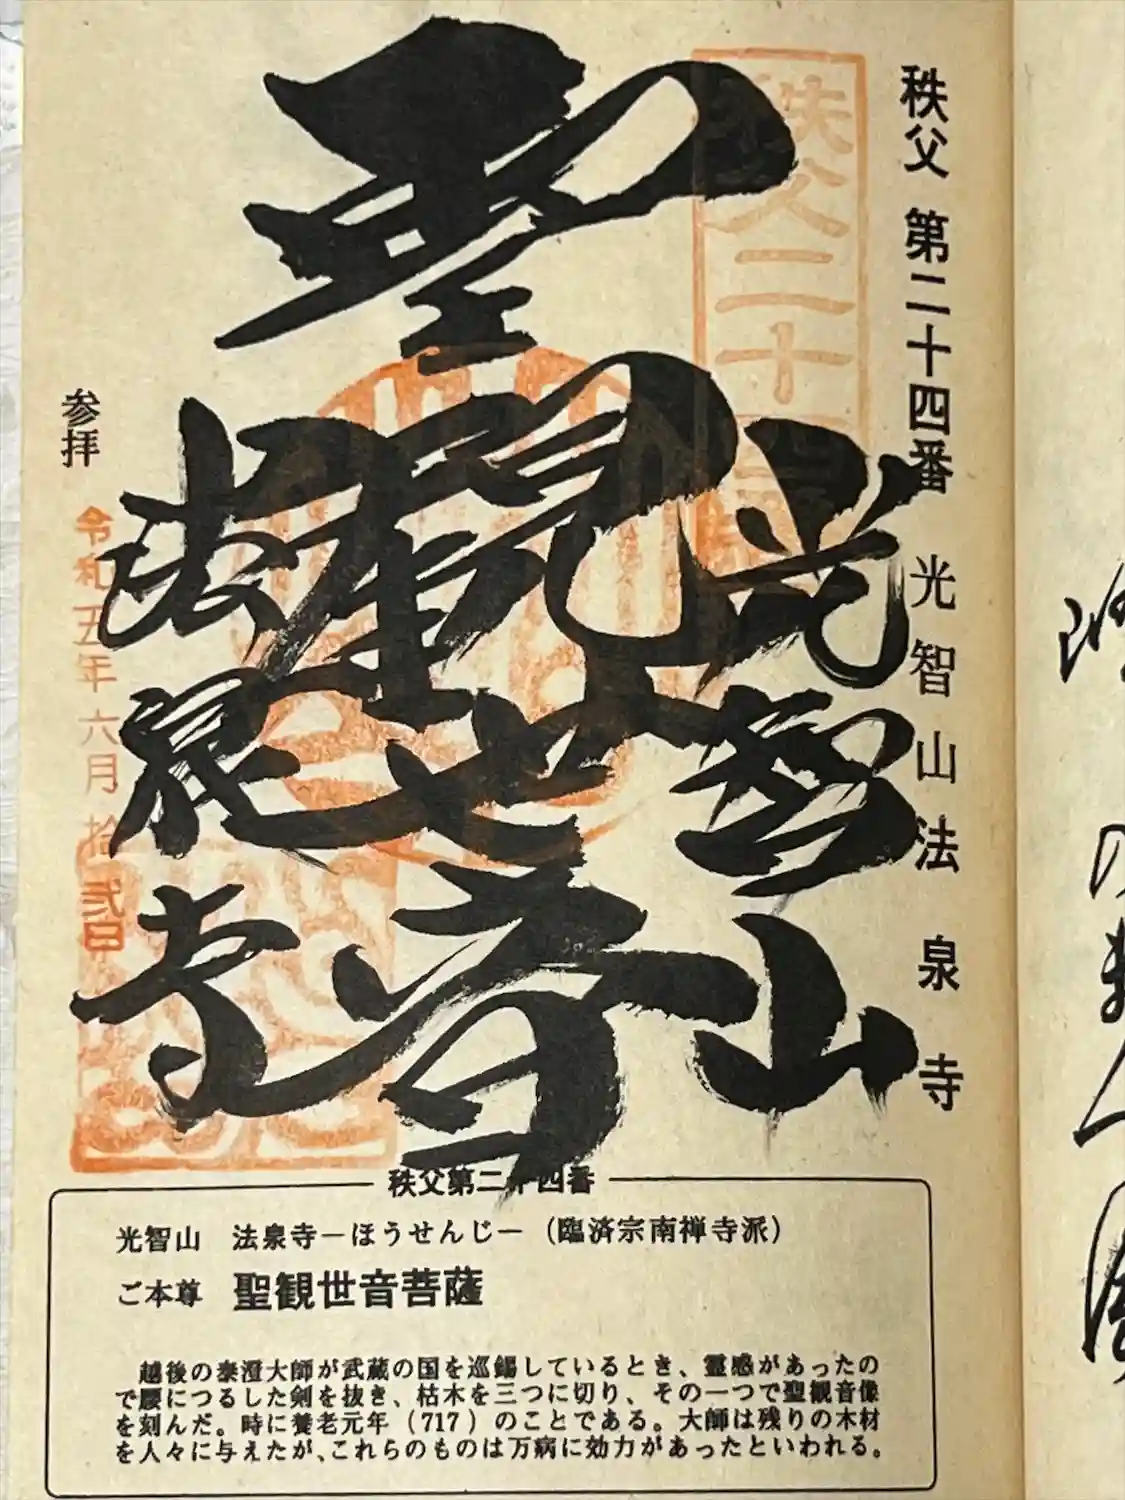 秩父 第二十四番 光智山法泉寺
秩父二十四
光智山
聖観世音
法泉寺
参拝
令和五年六月拾弐日
秩父第二十四番
光智山 法泉寺―ほうせんじ―(臨済宗南禅寺派)
ご本尊 聖観世音菩薩
越後の泰澄大師が武蔵の国を巡錫しているとき、霊感があったの
で腰につるした剣を抜き、枯木を三つに切り、その一つで聖観音像
を刻んだ。時に養老元年(717)のことである。大師は残りの木材
を人々に与えたが、これらのものは万病に効力があったといわれる。